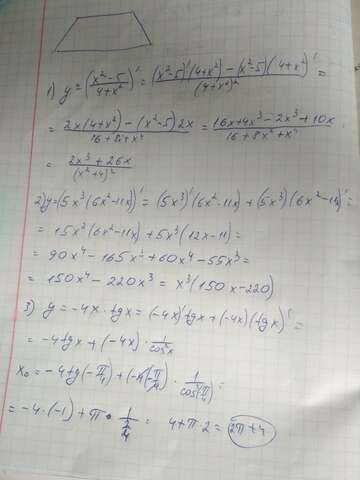 1) y = (x²-5 / 4+x²)' = (x²-5)'(4+x²) - (x²-5)(4+x²)' / (4+x²)² =
= 2x(4+x²) - (x²-5)2x / 16+8x²+x⁴ = 16x+4x³-2x³+10x / 16+8x²+x⁴
= 2x³+26x / (x²+4)²
2) y = (5x³(6x²-11x))' = (5x³)'(6x²-11x) + (5x³)(6x²-11x)' =
= 15x²(6x²-11x) + 5x³(12x-11) =
= 90x⁴ - 165x³ + 60x⁴ - 55x³ =
= 150x⁴ - 220x³ = x³(150x-220)
3) y = -4x · tgx = (-4x)'tgx + (-4x)(tgx)' =
= -4tgx + (-4x) · 1/cos²x
x₀ = -4tg(-π/4) + (-4(-π/4)) · 1/cos²(-π/4) =
= -4·(-1) + π · 1/(2/4) = 4+π·2 = 2π+4